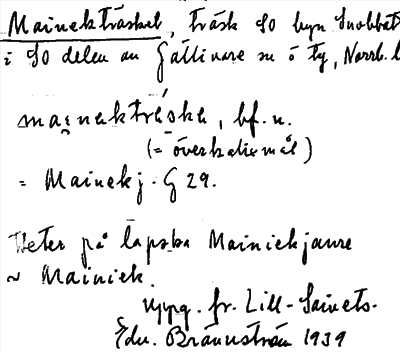 Mainekträsket, träsk SO byn Snobbat
i SO delen av Gällivare sn o ty, Norrb. l
mai̯nɛkträska, bf. n.
(= överkalixmål)
= Mainekj. G 29.
Heter på lapska Mainiekjaure
~ Mainiek.
Uppg. fr. Lill-Saivets-
Edv. Brännström 1939